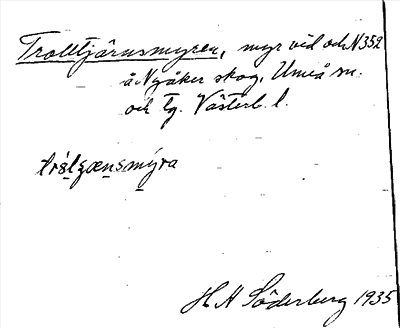 Trolltjärnsmyren, myr vid och N 352
å Nyåker skog, Umeå sn.
och tg. Västerb. l.
H A Söderberg 1935